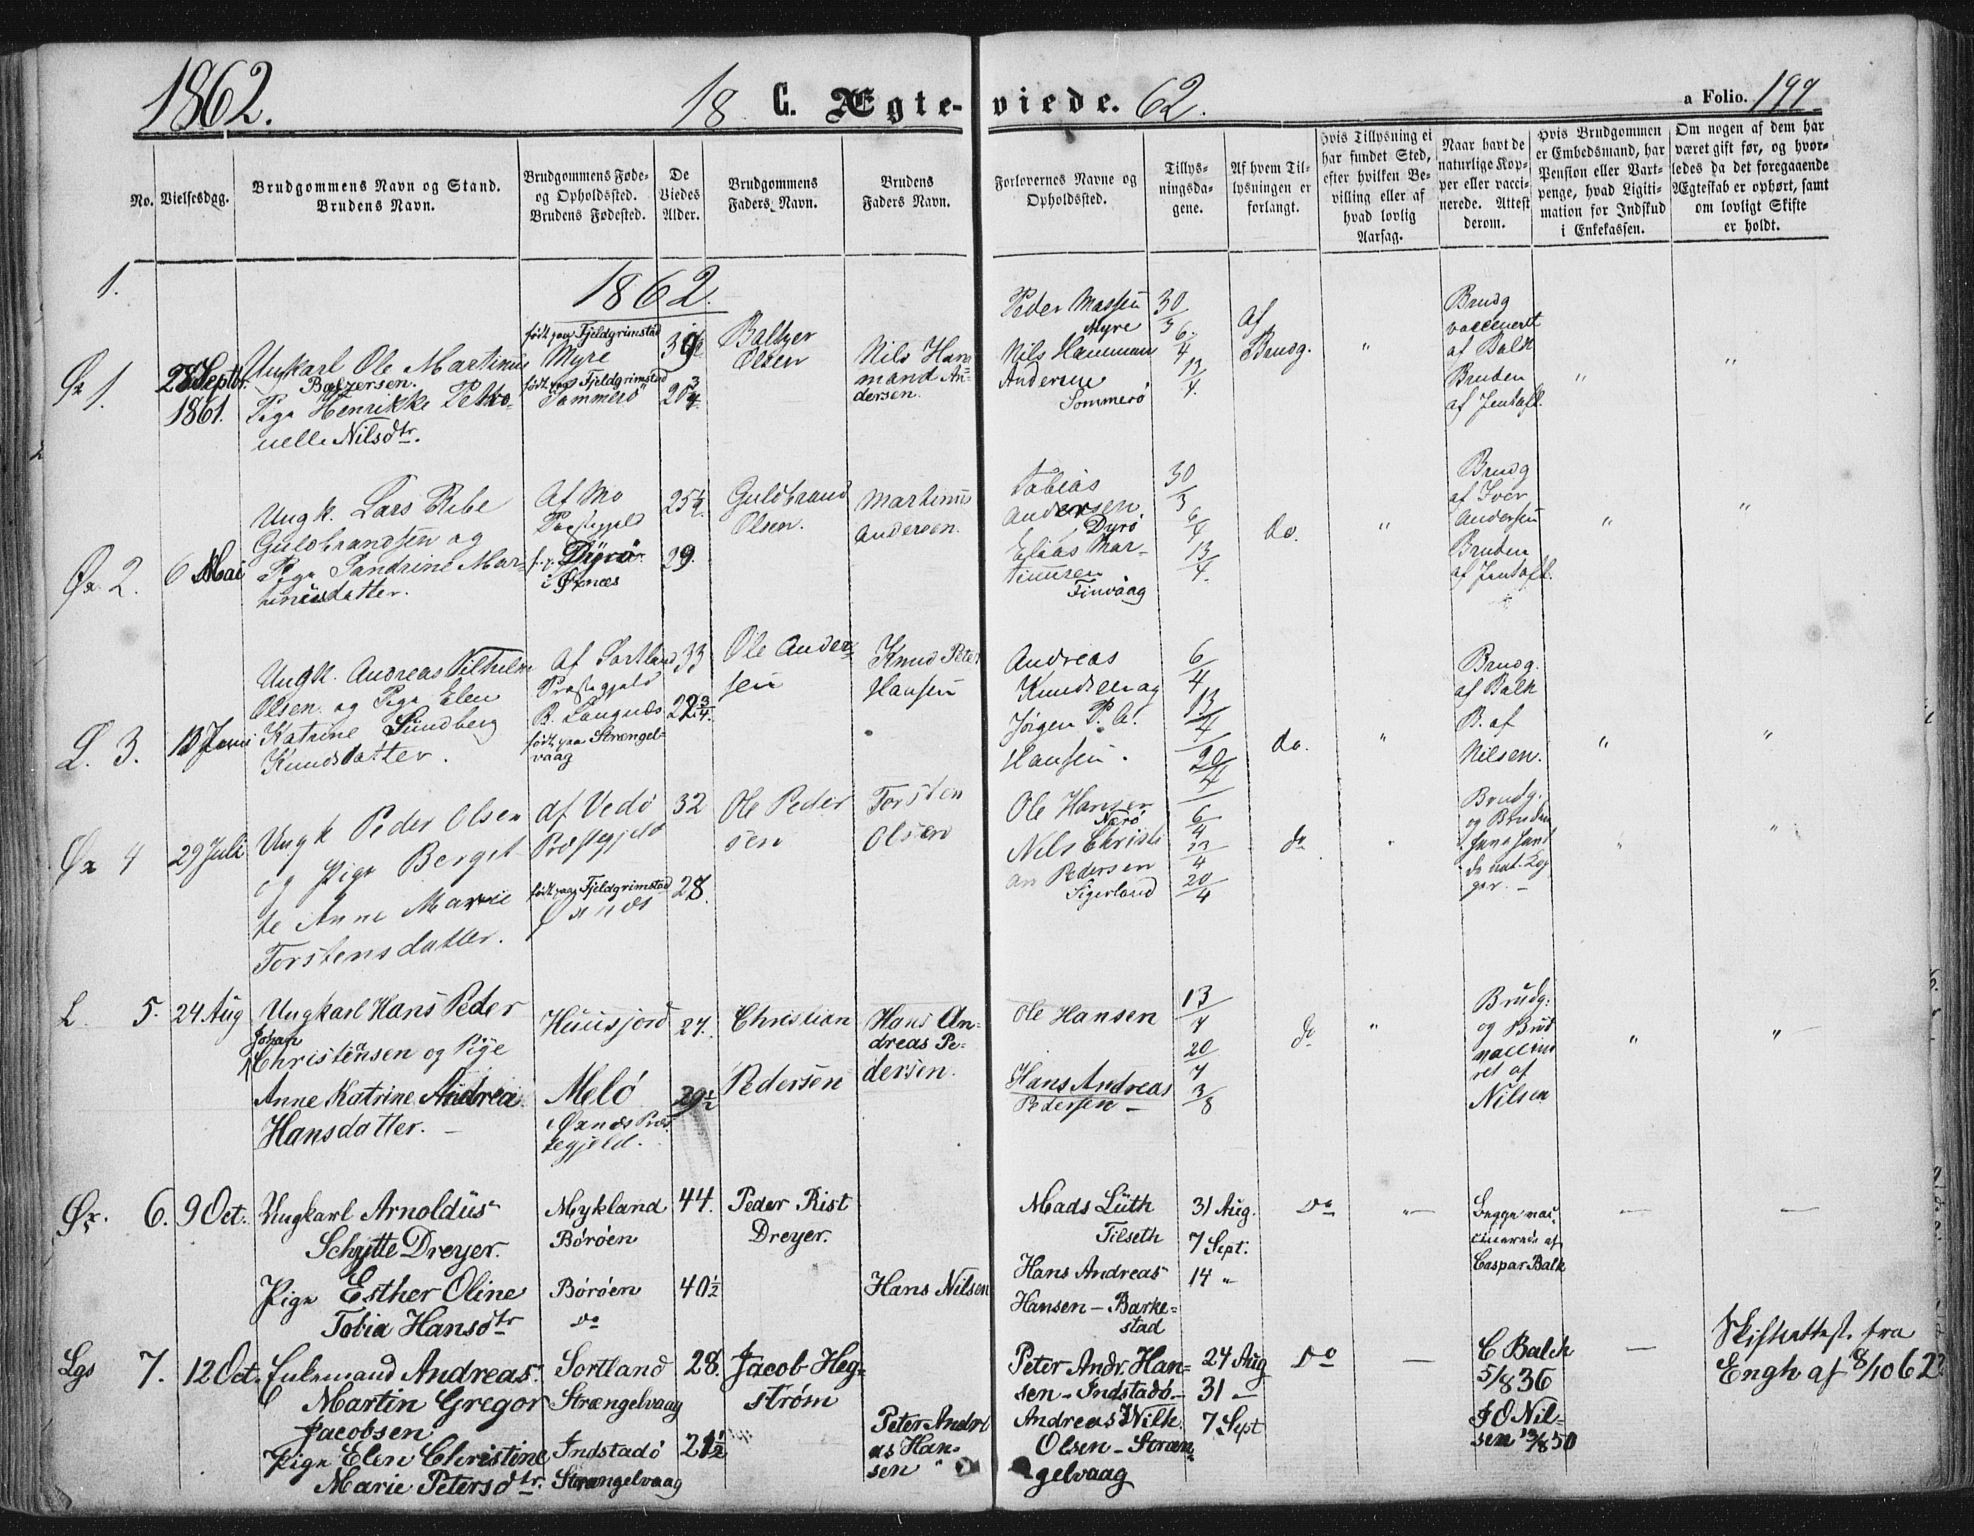 1862.
18 C. Ægte-viede. 62.
a Folio. 199
No.
Vielsesdag.
Brudgommens Navn og Stand.
Brudens Navn.
Brudgommens Føde-
og Opholdssted.
Brudens Fødested.
De
Viedes
Alder.
Brudgommens
Faders Navn.
Brudens
Faders Navn.
Forlovernes Navne og
Opholdssted.
Tillys-
ningsda-
gene.
Af hvem Til-
lysningen er
forlangt.
Hvis Tillysning ei
har fundet Sted,
efter hvilken Be-
villing eller af
hvad lovlig
Aarsag.
Naar havt de
naturlige Kop-
per eller vacci-
nerede. Attest
derom.
Hvis Brudgommen
er Embedsmand, har
Pension eller Vart-
penge, hvad Ligiti-
mation for Indskud
i Enkekassen.
Om nogen af dem har
været gift før, og hvor-
ledes da det foregaaende
Ægteskab er ophørt, samt
om lovligt Skifte
er holdt.
1.
1862.
Øx 1.
28 Septbr.
1861.
Ungkarl Ole Martinus
Balzersen.
Pige Henrikke Petro-
nelle Nilsdtr.
født paa Fjeldgrimstad
Myre
født paa Fjeldgrimstad
Sommerø
20 3/4
Baltzer
Olsen
Nils Ham
mand An-
dersen.
Peder Madsen
Myre
Nils Hamman
Andersen
Sommerø
30/3
6/4
13/4.
af
Brudg.
"
Brudg
vaccineret
af Balk
Bruden
af Jentoft.
"
"
Øx. 2.
6 Mai
Ungk. Lars Ribe
Guldbrandsen og
Pige Sandrine Mar-
tinusdatter.
Af Mo
Præstegjeld
Dyrø
i Øxnæs
25 1/2.
29.
Guldbrand
Olsen.
Martinus
Andersen.
Tobias
Andersen
Dyrø
Elias Mar-
tinusen
Finvaag
30/3
6/4
13/4.
do.
"
Brudg
af Iver
Andersen
Bruden
af Jentoft.
"
"
L. 3.
13 Juni
Ungk. Andreas Vilhelm
Olsen og Pige Elen
Katrine Sundberg
Knudsdatter.
Af Sortland
Præstegjeld
B. Langnæs
født paa Strængel-
vaag
33
22 3/4.
Ole Ander-
sen
Knud Peter
Hansen
Andreas
Knudsen og
Jørgen P. A.
Hansen.
6/4
13/4
20/4
do.
"
Brudg.
af Balk
B. af
Nilsen.
"
"
Øx 4
29 Juli
Ungk Peder Olsen
og Pige Berget-
te Anne Marie
Torstensdatter.
Af Vedø
Præstegjeld
født paa Fjeldgrimstad
Øxnæs
32
28.
Ole Peder
sen
Torsten
Olsen
Ole Hansen
Nærø
Nils Christi
an Pedersen
Sigerland
6/4
13/4
20/4
do
"
Brudg.
og Bruden
de nat. Kop
per. –
"
"
L. 5.
24 Aug
Ungkarl Hans Peder
Johan
Christensen og Pige
Anne Katrine Andrea
Hansdatter. –
Huusjord
Melø
Øxnæs Præs
tegjeld.
27.
29 1/2
Christian
Pedersen
Hans An-
dreas Pe-
dersen.
Ole Hansen
Hans Andreas
Pedersen –
13/7
20/7
3/8
do
"
Brudg:
og Brud
vaccine
ret af
Nilsen
"
"
Øx. 6.
9 Oct.
Ungkarl Arnoldus
Schytte Dreyer.
Pige Esther Oline
Tobia Hansdtr
Mykland
Børøen
Børøen
do
44.
40 1/2
Peder Rist
Dreyer.
Hans Nilsen
Mads Lüth
Tilseth
Hans Andreas
Hansen – Barke-
stad
31 Aug.
7 Sept.
14 "
Do
"
Begge vac-
cinerede af
Caspar Balk
–
–
Lgs 7.
12 Oct.
Enkemand Andreas
Martin Gregor
Jacobsen
Pige Elen Christine
Marie Petersdtr.
Sortland
Strængelvaag
Indstadø
Strængelvaag
28.
21 1/2
Jacob Heg-
strøm
Peter Andre
as Han-
sen
Peter Andr. Han-
sen – Indstadø –
Andreas Wilh.
Olsen – Stræn
gelvaag
24 Aug
31 –
7 Sept
Do
–
C Balch
5/8 36
J O Nil-
sen 19/8 50
–
Skifteattest. fra
Engh af 8/10 62